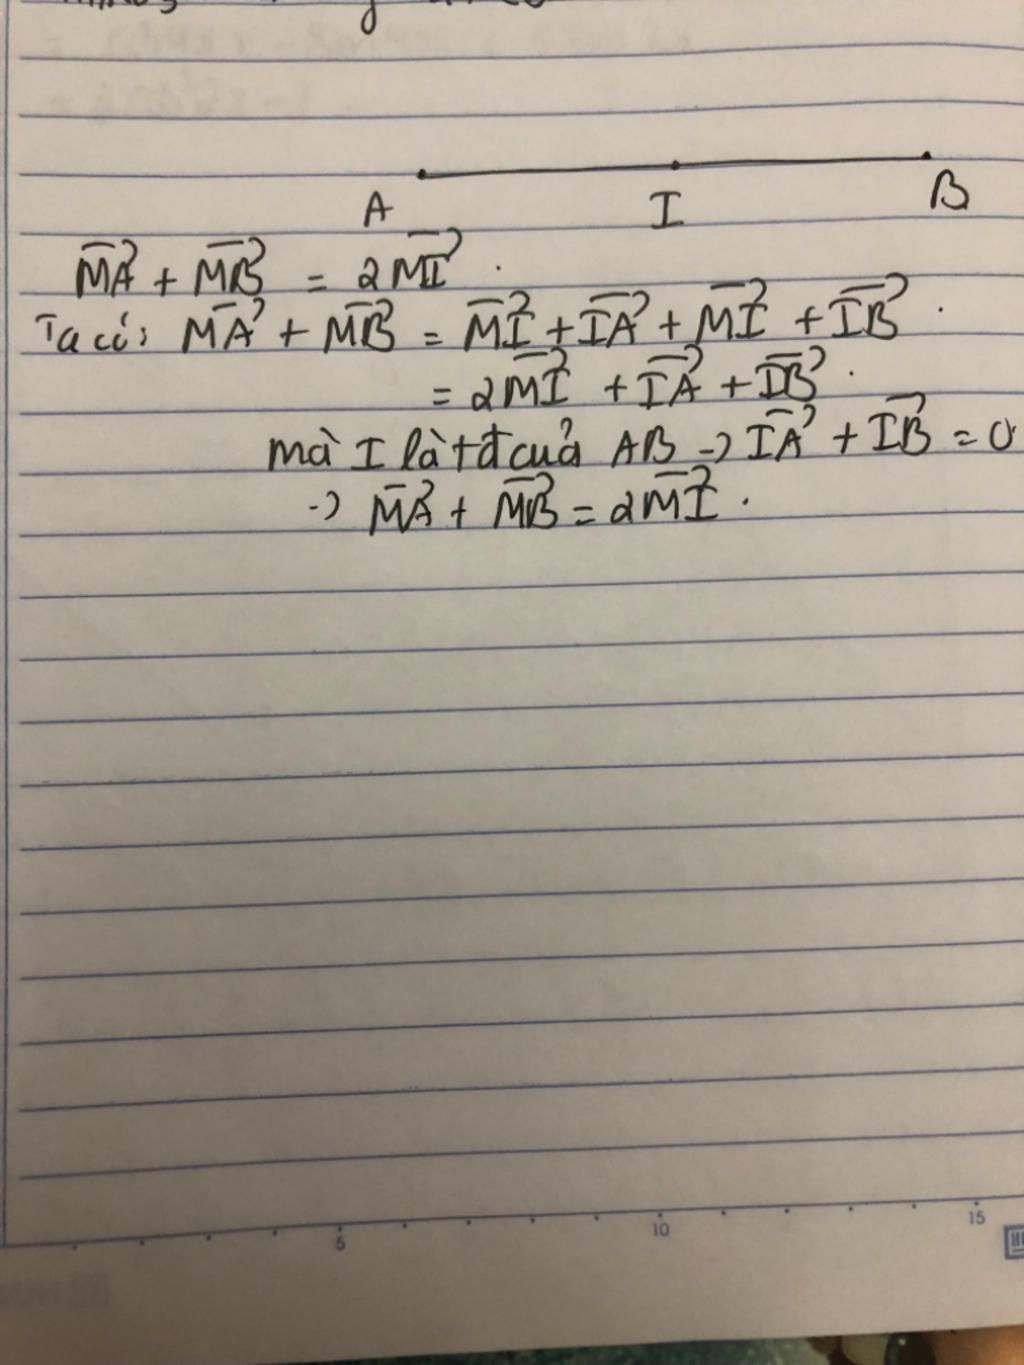 A I B
MA⃗ + MB⃗ = 2MI⃗.
Ta có: MA⃗ + MB⃗ = MI⃗ + IA⃗ + MI⃗ + IB⃗.
= 2MI⃗ + IA⃗ + IB⃗.
mà I là tđ của AB → IA⃗ + IB⃗ = 0
→ MA⃗ + MB⃗ = 2MI⃗.
5 10 15